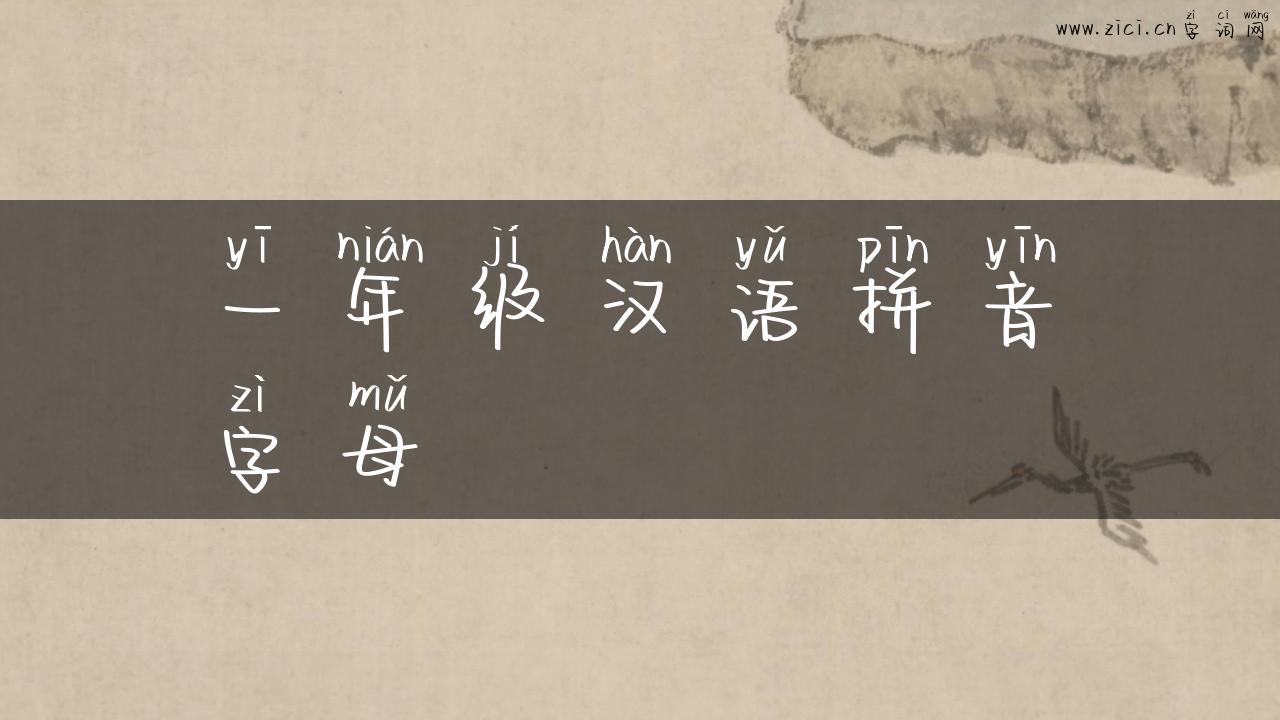 zì cí wǎng
www.zici.cn 字词网
yī nián jí hàn yǔ pīn yīn
一年级汉语拼音
zì mǔ
字母